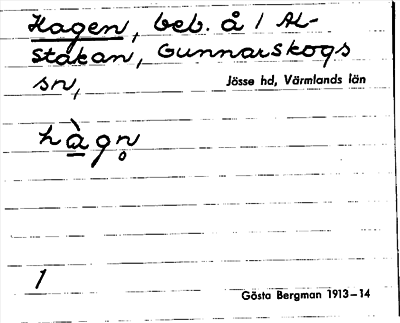 Hagen, beb. å 1 Al-
stakan, Gunnarskogs
sn,
Jösse hd, Värmlands län
hàgn̥
1
Gösta Bergman 1913–14